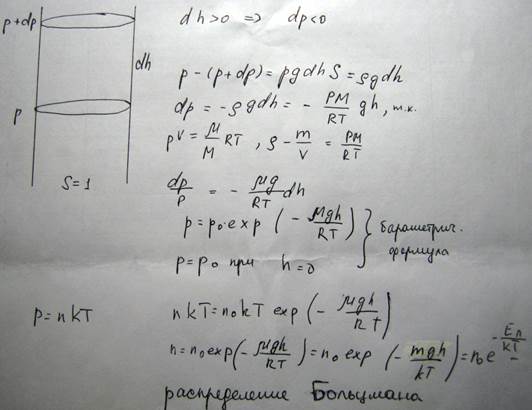 p+dp
dh>0 => dp<0
dh
p
S=1
p-(p+dp)=ρgdhS=ρgdh
dp=-ρgdh=-PM/RT gh, т.к.
pV=M/M RT, ρ-m/V=PM/RT
dp/P=-Mg/RT dh
p=p₀·exp(-Mgh/RT)
p=p₀ при h=0
барометрич.
формула
p=nkT
nkT=n₀kT exp(-Mgh/RT)
n=n₀exp(-Mgh/RT)=n₀ exp(-mgh/kT)=n₀e^(-Eп/kT)
распределение Больцмана